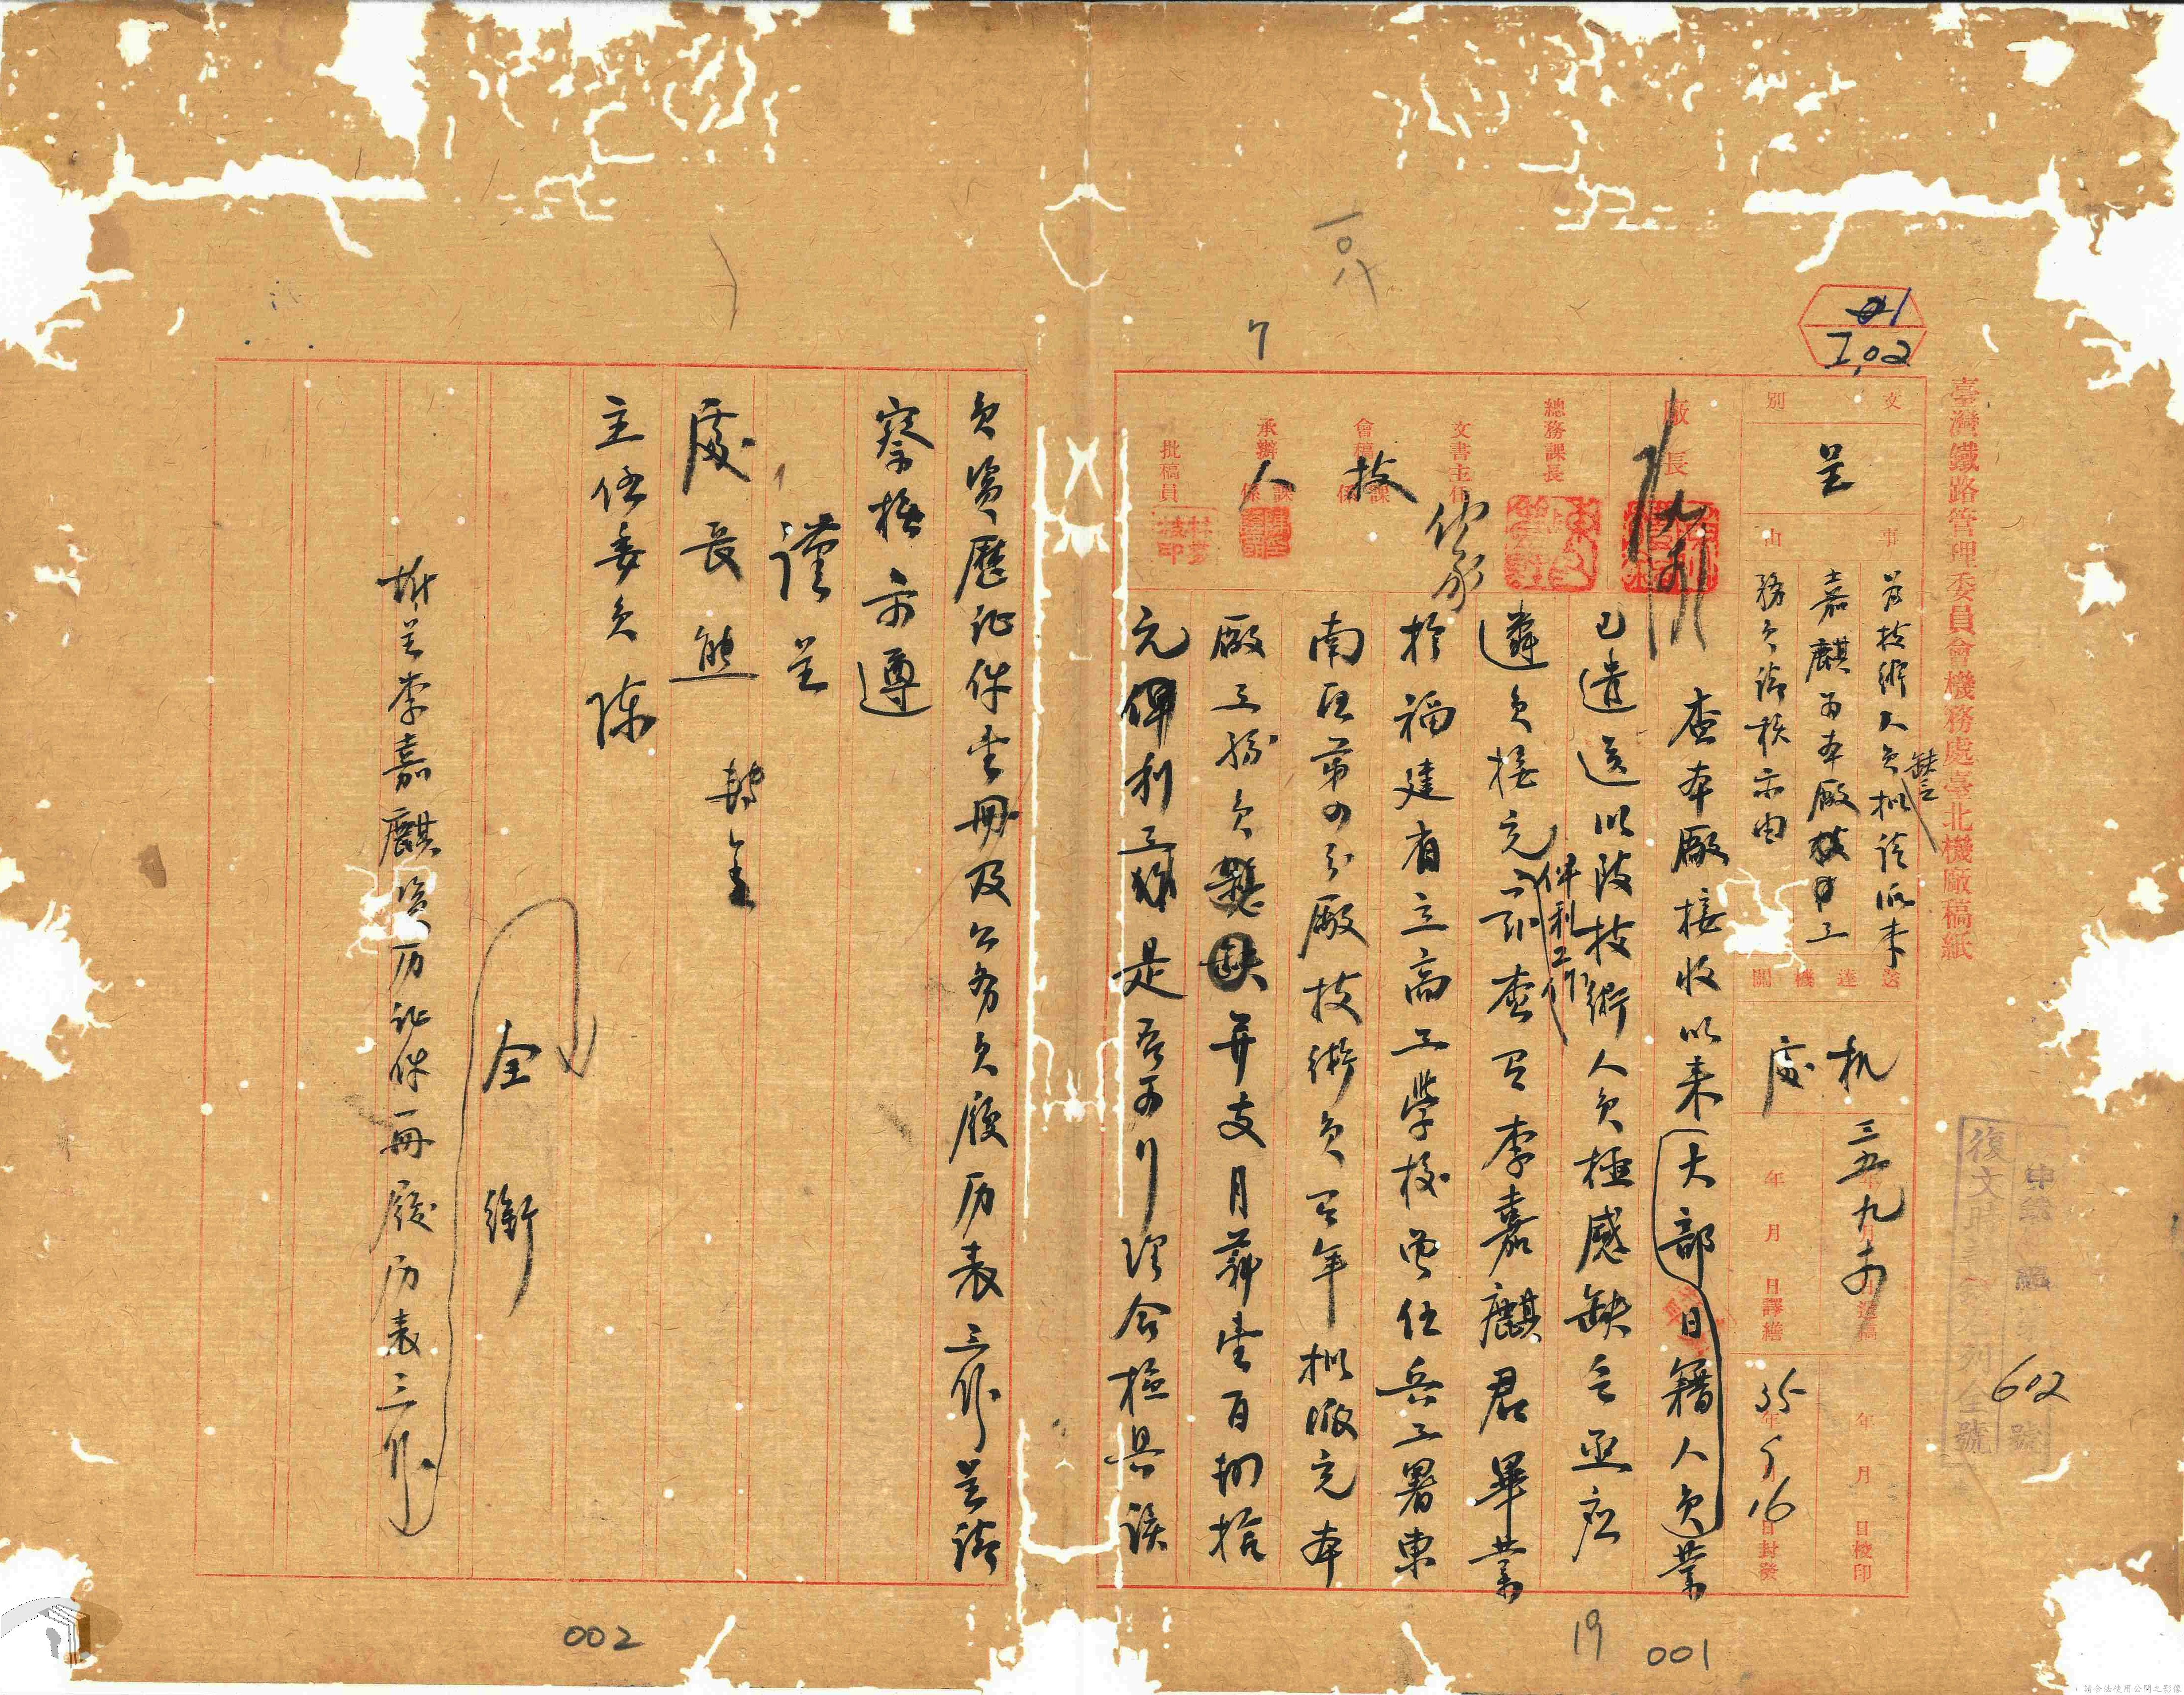 臺灣鐵路管理委員會機務處臺北機廠稿紙
01
I,02
文別
呈
事由
為技術人員缺乏擬請派李
嘉麒為本廠工
務員請核示由
送達機關
机
處
三五 九
年 月 日譯繕
年 月 日校印
35年5月16日封發
602
復文時
列全號
號
廠長
總務課長
文書主任
會稿 課係
技
承辦 課係
人
批稿員
查本廠接收以來大部日籍人員業
已遣送以致技術人員極感缺乏亟應
遴員接充俾利工作查有李嘉麒君畢業
於福建省立高工學校曾任兵工署東
南區第四分廠技術員有年擬派充本
廠工務員並支月薪壹百捌拾
元是否可行理合檢具該
員資歷証件壹冊及公務員履历表三份呈請
察核示遵
謹呈
處長熊 轉呈
主任委員陳
全銜
附呈李嘉麒資历証件一冊履历表三份
一〇八
7
19
001
002
請合法使用公開之影像